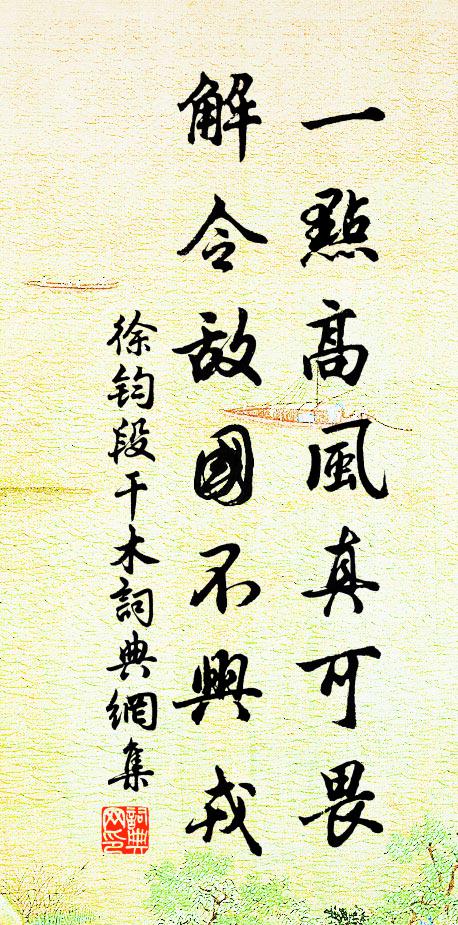 一點高風真可畏
解令敌國不興戎
徐鈞段干木詞典網集
詞典网印